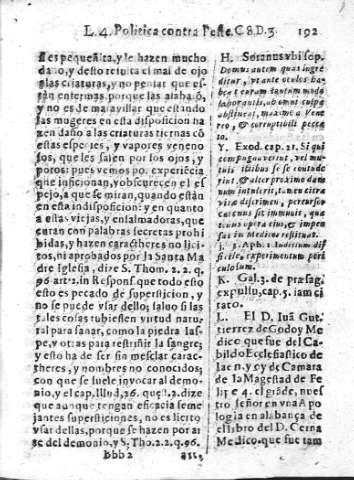 L. 4. Politica contra Peste. C 8. D. 3. 192
si es pequeñita, y le hazen mucho
daño, y desto resulta el mal de ojo
a las criaturas, y no pensar que es-
tàn enfermas porque las alabaõ,
y no es de maravillar que estando
las mugeres en esta disposicion ha
zen daño a las criaturas tiernas cõ
estas especies, y vapores veneno
sos, que les salen por los ojos, y
poros: pues vemos por experiẽcia
que inficionan, y obscurecen el es
pejo, a que se miran, quando estàn
en esta indisposicion: y en quanto
a estas viejas, y ensalmadoras, que
curan con palabras secretas prohi
bidas, y hazen caractheres no lici
tos, ni aprobados por la Santa Ma
dre Iglesia, dize S. Thom. 2. 2. q.
96. art. 2. in Respons. que todo esto
esto es pecado de supersticion, y
no se puede vsar dello, salvo si las
tales cosas tubiessen virtud natu
ral para sanar, como la piedra Ias-
pe, y otras para restriñir la sangre;
y esto ha de ser sin mesclar carac-
theres, y nombres no conocidos;
con que se suele invocar al demo-
nio, y el cap. Illud, 26. quæst. 2. dize
que aunque tengan eficacia seme
jantes supersticiones, no es licito
vsar dellas, porque se hazen por ar
te del demonio, y S. Tho. 2. 2. q. 96.
Bbb 2
H. Soranus vbi sup.
Domus autem quas ingre
ditur, vt ante oculos ha
bea t curam tantum modo
laborantis, ab omni culpa
abstineat, maximè a Vene
reo, & corruptibili pecca
to.
Y. Exod. cap. 21. Si qui
compugnaverint, vel mu-
tuis ictibus se se contude
rint, & alter proximo dam
num intulerit, tamen citra
vitæ discrimen, percursor
cædis sit immunis, qua
tenus opera eius, & impen
sas in Medicos restituat.
J. 1. Aph. 1. Iudicium dif
ficile, experimentum peri
culosum.
K. Gal. 3. de præsag.
expulsu, cap. 5. iam ci
tato.
L. El D. Iuã Gut
tierrez de Godoy Me
dico que fue del Ca-
bildo Ecclesiastico de
Iaen, y de Camara
de la Magestad de Fe
lipe 4. el grãde, nues
tro señor en vna Apo
logia en alabança de
el libro del D. Cerna
Medico, que fue tam